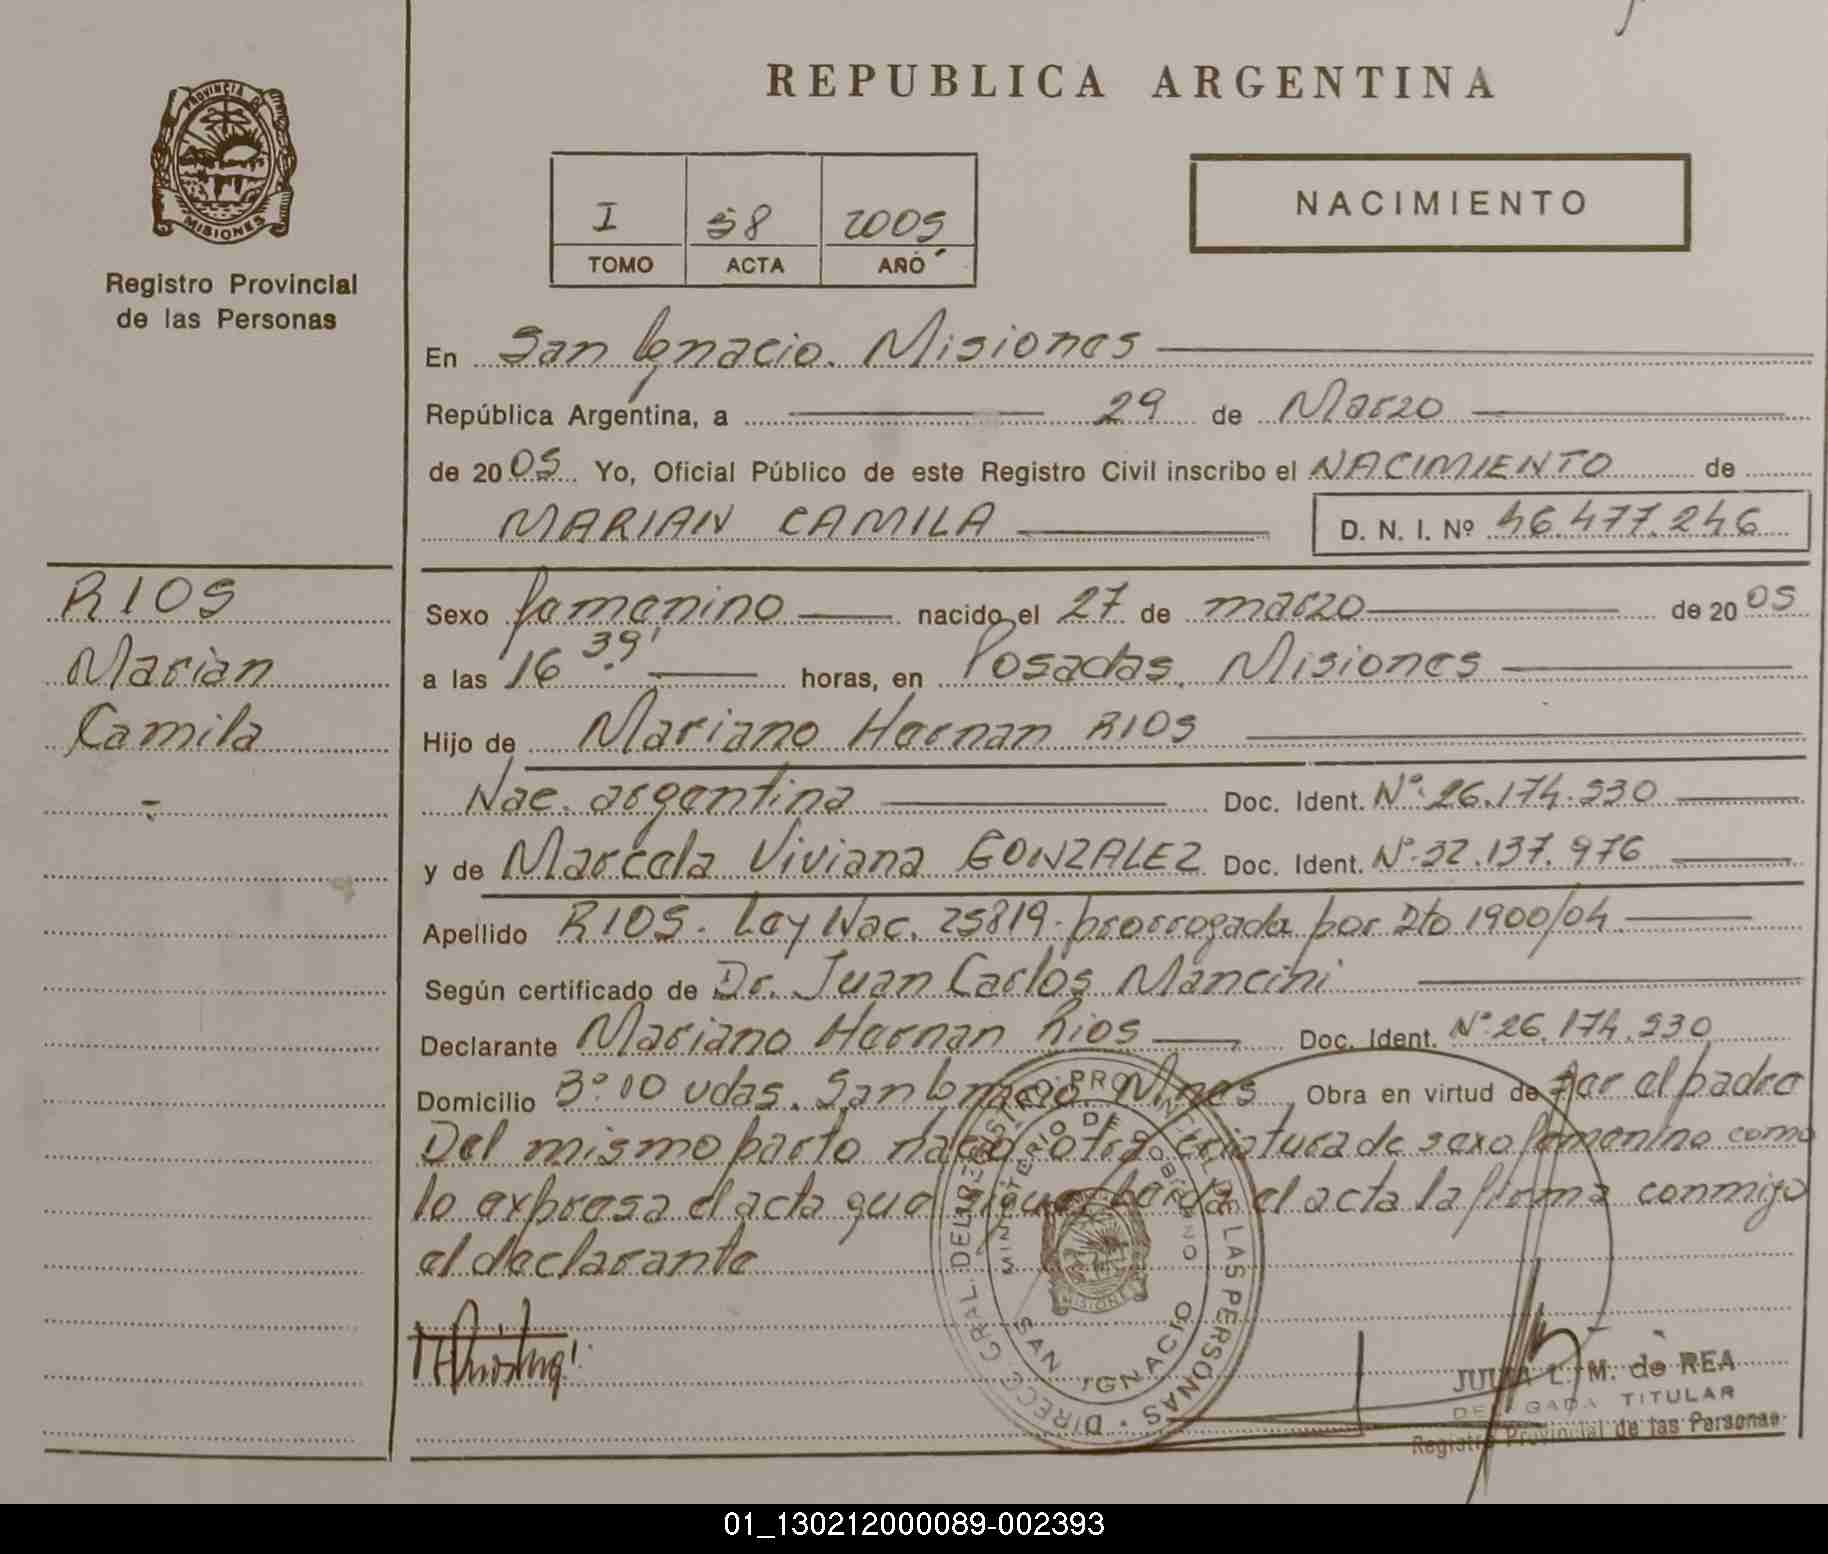 PROVINCIA DE
MISIONES
Registro Provincial
de las Personas
REPUBLICA ARGENTINA
I 58 2005
TOMO ACTA AÑO
NACIMIENTO
En San Ignacio. Misiones
República Argentina, a 29 de Marzo
de 2005 Yo, Oficial Público de este Registro Civil inscribo el NACIMIENTO de
MARIAN CAMILA D. N. I. Nº 46.477.246
RIOS
Marian
Camila
Sexo femenino nacido el 27 de marzo de 2005
a las 16 39' horas, en Posadas, Misiones
Hijo de Mariano Hernan RIOS
Nac. argentina Doc. Ident. Nº 26.174.530
y de Marcela Viviana GONZALEZ Doc. Ident. Nº 32.137.976
Apellido RIOS. Ley Nac. 25819. prorrogada por Dto 1900/04
Según certificado de Dr. Juan Carlos Mancini
Declarante Mariano Hernan Rios Doc. Ident. Nº 26.174.530
Domicilio 3º 10 vdas. San Ignacio. Mnes Obra en virtud de ser el padre
Del mismo parto nació otra criatura de sexo femenino como
lo expresa el acta que sigue el acta la firma conmigo
el declarante
DIREC. GRAL. DEL REGISTRO PROVINCIAL DE LAS PERSONAS
MINISTERIO DE GOBIERNO
SAN IGNACIO
MISIONES
JULIA L. M. de REA
DELEGADA TITULAR
Registro Provincial de las Personas
01_130212000089-002393